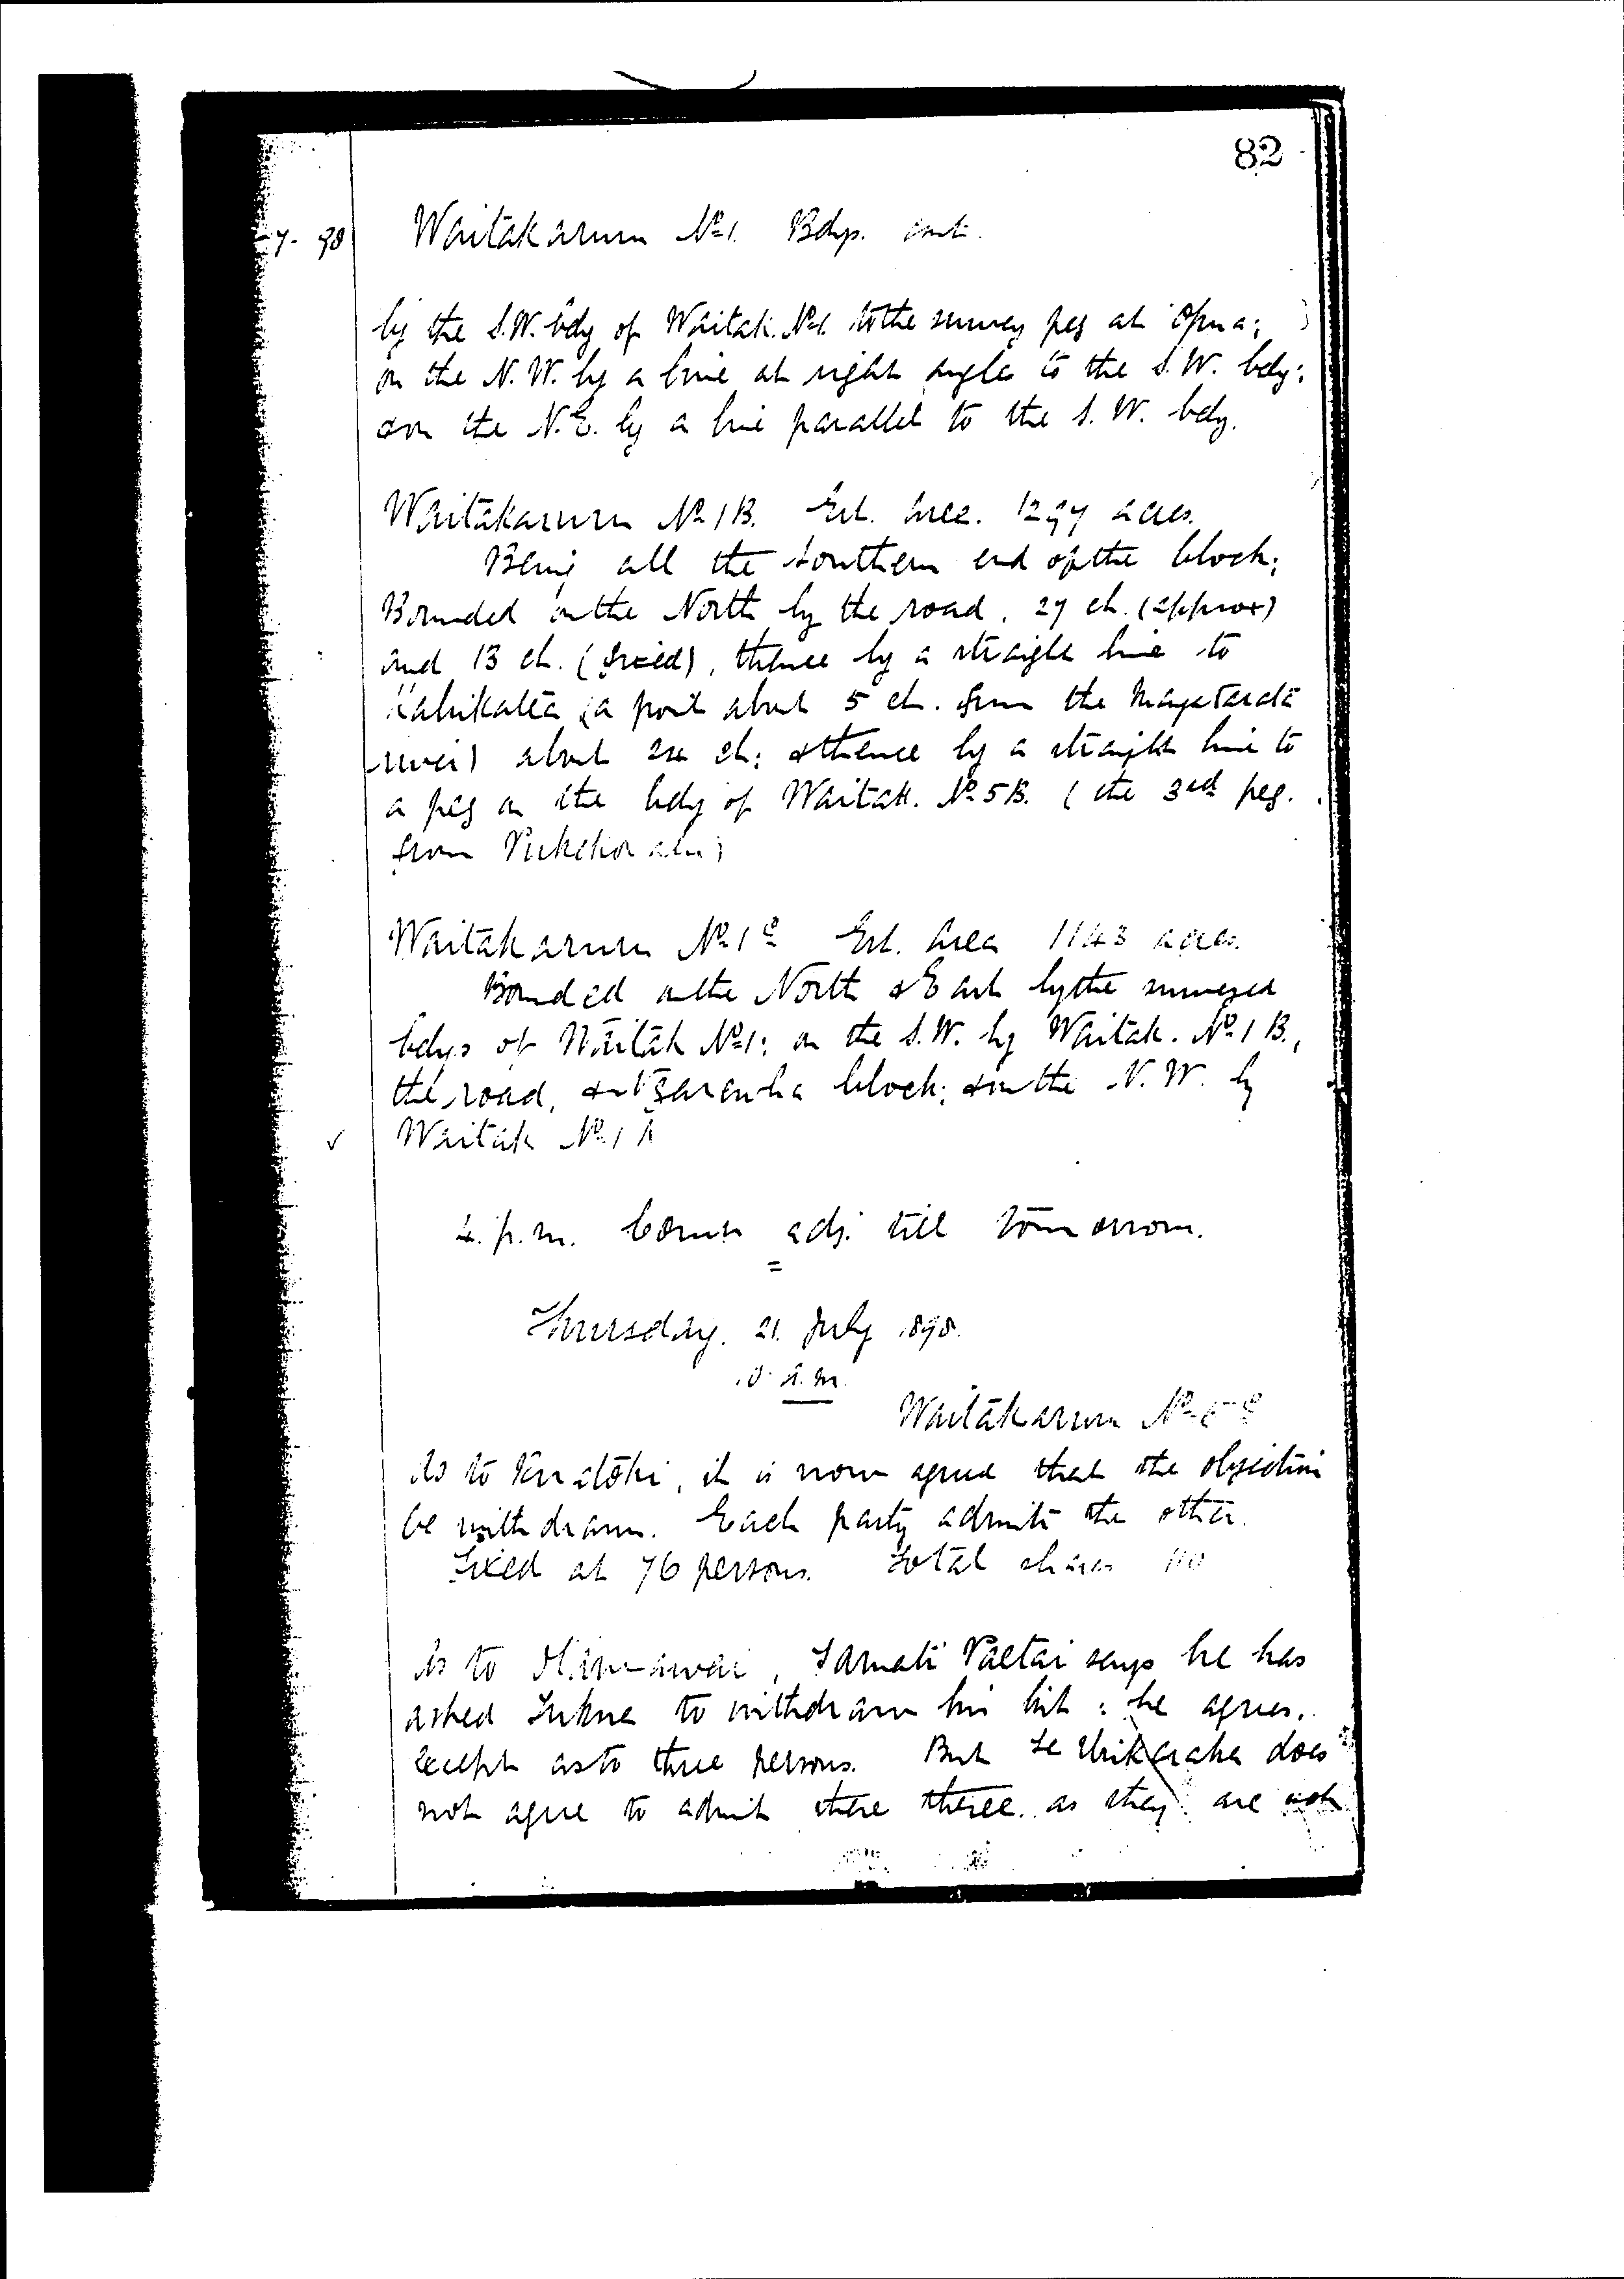 82
7. 98
Waitakaruru No 1. Bdys. cont.
by the S.W. bdy of Waitak. No 1. to the survey peg at Opua;
on the N.W. by a line at right angles to the S.W. bdy;
& on the N.E. by a line parallel to the S.W. bdy.
Waitakaruru No 1B. Est. Area. 1297 acres.
Being all the Southern end of the block;
Bounded on the North by the road, 27 ch. (approx)
and 13 ch. (fixed), thence by a straight line to
Kahikatea (a point about 5 ch. from the Mangatarata
river) about ch: & thence by a straight line to
a peg on the bdy of Waitak. No 5B. (the 3rd peg.
from
Waitakaruru No 1C Est. Area 1143 acres.
Bounded on the North & East by the surveyed
bdys of Waitak No 1: on the S.W. by Waitak. No 1B.,
the road, & block; & on the N.W. by
Waitak No 1A
4. p.m. Court adj. till tomorrow.
Thursday. 21. July 1898.
10 a.m.
Waitakaruru No
As to , it is now agreed that the objection
be withdrawn. Each party admits the other.
Fixed at 76 persons. Total shares
As to , Tamati Paetai says he has
asked to withdraw his list : he agrees.
except as to three persons. But Te does
not agree to admit these three. as they are not